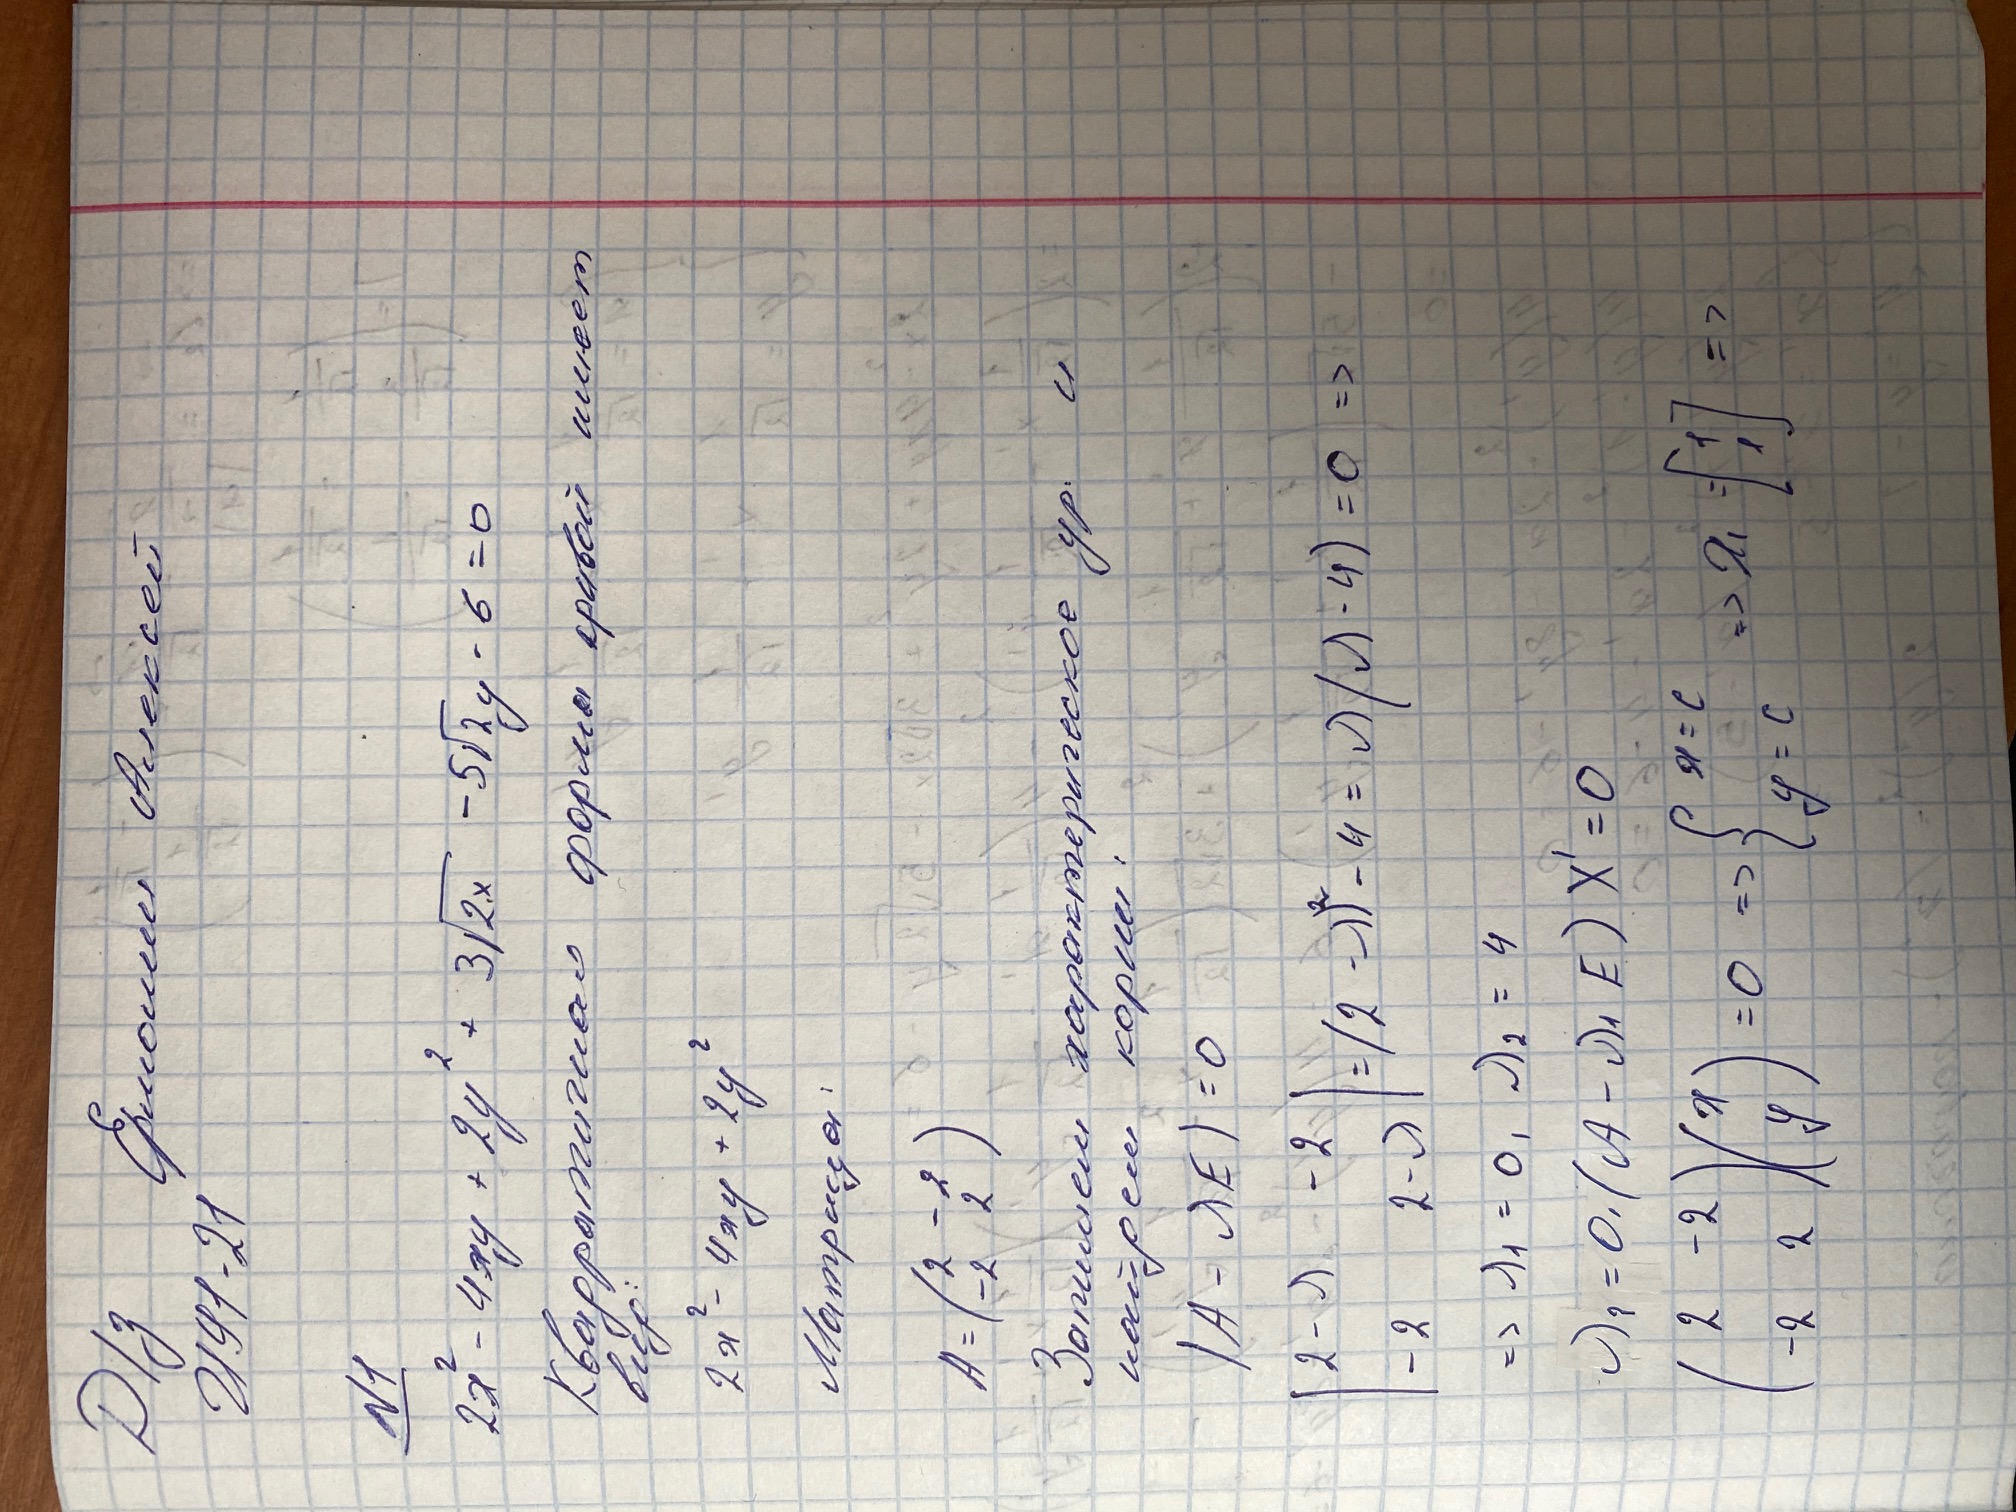 D/з Ермолин Алексей
ИЧ1-21
N1
2x² - 4xy + 2y² + 3√2x - 5√2y - 6 = 0
Квадратичная форма кривой имеет
вид:
2x² - 4xy + 2y²
Матрица:
A = (2 -2
-2 2)
Запишем характеристическое ур. и
найдем корни:
|A - λE| = 0
|2-λ -2
-2 2-λ| = (2-λ)² - 4 = λ(λ-4) = 0 =>
=> λ₁ = 0, λ₂ = 4
λ₁ = 0, (A - λ₁E)X' = 0
(2 -2
-2 2)(x
y) = 0 => {x = c
y = c => x₁ = [1
1] =>